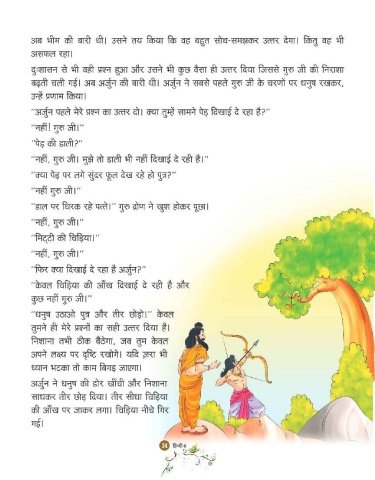 अब भीम की बारी थी। उसने तय किया कि वह बहुत सोच-समझकर उत्तर देगा। किंतु वह भी
असफल रहा।
दुःशासन से भी वही प्रश्न हुआ और उसने भी कुछ वैसा ही उत्तर दिया जिससे गुरु जी की निराशा
बढ़ती चली गई। अब अर्जुन की बारी थी। अर्जुन ने सबसे पहले गुरु जी के चरणों पर धनुष रखकर,
उन्हें प्रणाम किया।
"अर्जुन पहले मेरे प्रश्न का उत्तर दो। क्या तुम्हें सामने पेड़ दिखाई दे रहा है?"
"नहीं! गुरु जी।"
"पेड़ की डाली?"
"नहीं, गुरु जी। मुझे तो डाली भी नहीं दिखाई दे रही है।"
"क्या पेड़ पर लगे सुंदर फूल देख रहे हो पुत्र?"
"नहीं गुरु जी।"
"डाल पर थिरक रहे पत्ते।" गुरु द्रोण ने खुश होकर पूछा।
"नहीं, गुरु जी।"
"मिट्टी की चिड़िया।"
"नहीं, गुरु जी।"
"फिर क्या दिखाई दे रहा है अर्जुन?"
"केवल चिड़िया की आँख दिखाई दे रही है और
कुछ नहीं गुरु जी।"
"धनुष उठाओ पुत्र और तीर छोड़ो।" केवल
तुमने ही मेरे प्रश्नों का सही उत्तर दिया है।
निशाना तभी ठीक बैठेगा, जब तुम केवल
अपने लक्ष्य पर दृष्टि रखोगे। यदि ज़रा भी
ध्यान भटका तो काम बिगड़ जाएगा।
अर्जुन ने धनुष की डोर खींची और निशाना
साधकर तीर छोड़ दिया। तीर सीधा चिड़िया
की आँख पर जाकर लगा। चिड़िया नीचे गिर
गई।
34 हिन्दी-6